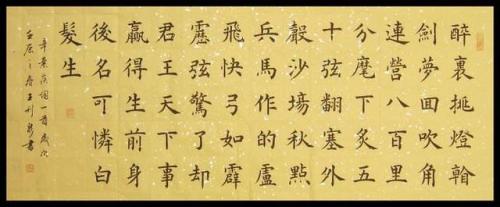 醉裏挑燈看
劍夢回吹角
連營八百里
分麾下炙五
十弦翻塞外
聲沙場秋點
兵馬作的盧
飛快弓如霹
靂弦驚了却
君王天下事
贏得生前身
後名可憐白
髮生
辛棄疾詞一首歲次
壬辰之春王刊書